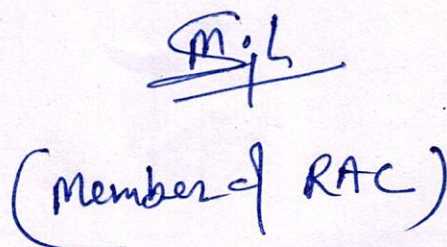 (Member of RAC)